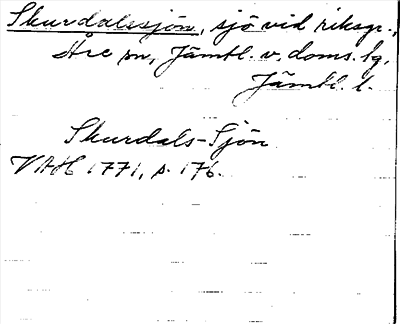 Skurdalssjön, sjö vid riksgr.,
Åre sn, Jämtl. v. doms. hg,
Jämtl. l.
Skurdals-Sjön
VAH 1771, s. 176.